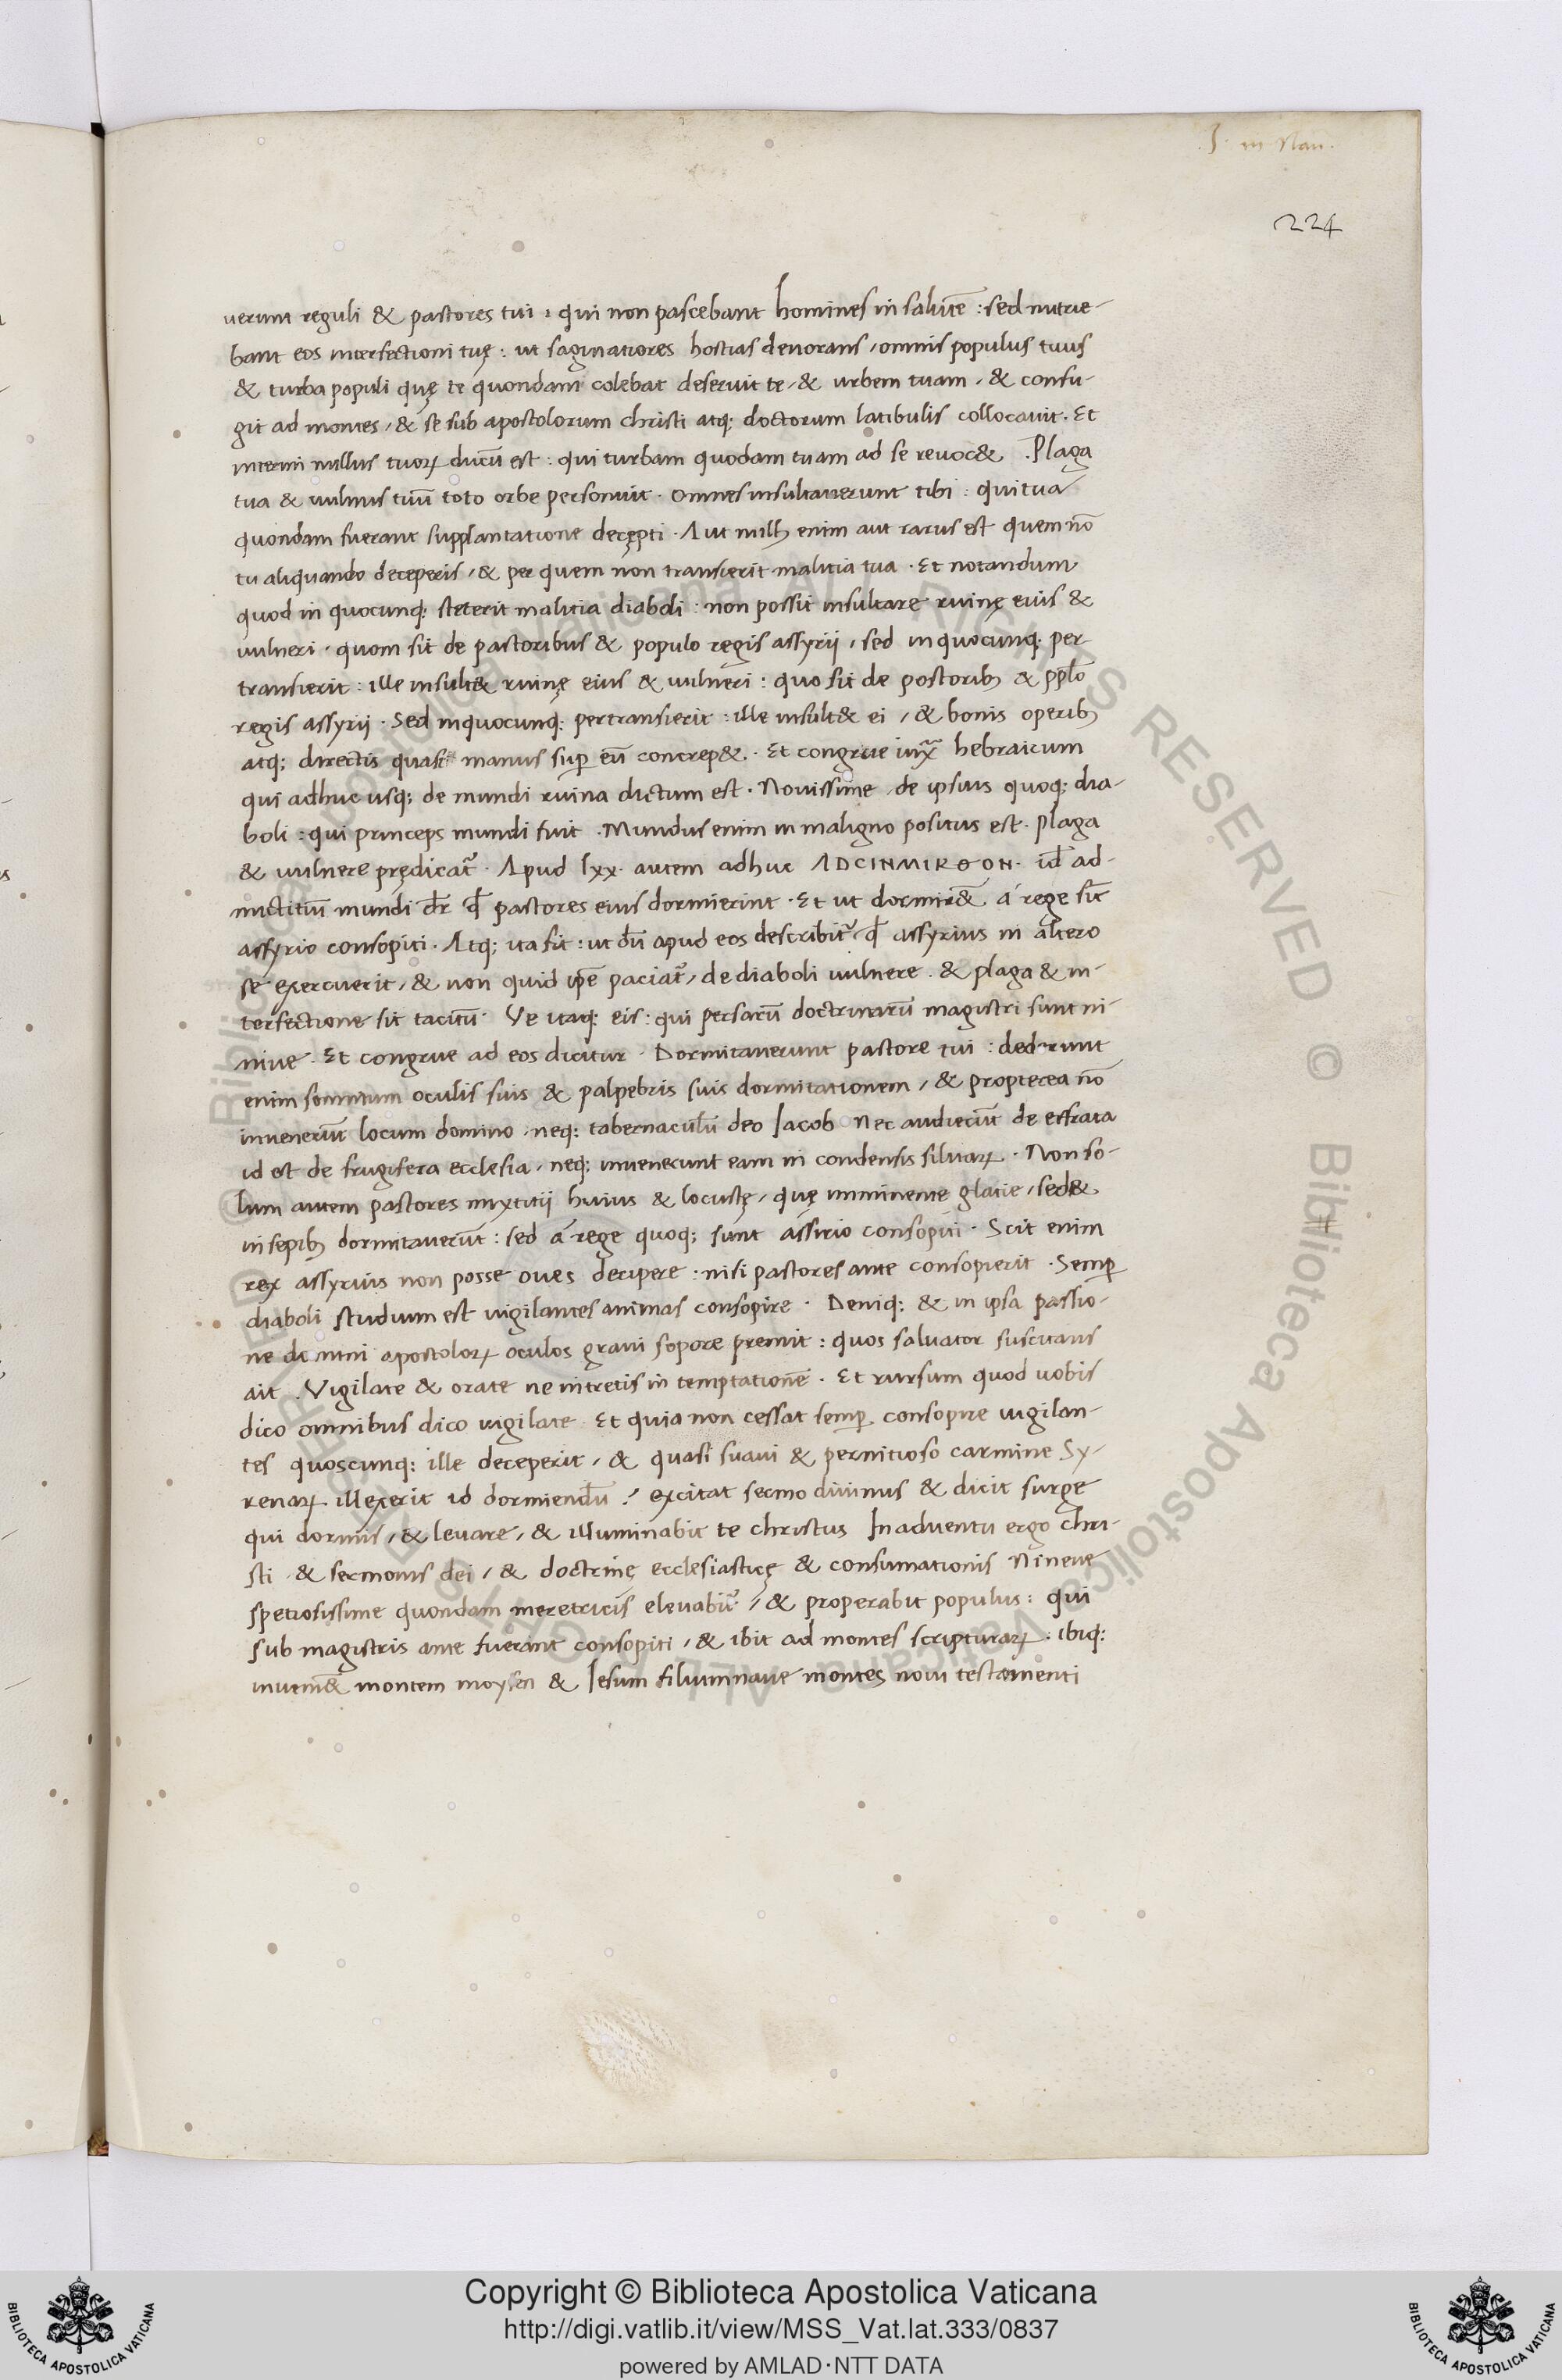 .J. in Nau.
224
uerunt reguli & pastores tui. qui non pascebant homines in salutē: sed nutrie-
bant eos interfectioni tuę: ut saginatiores hostias deuorans, omnis populus tuus
& turba populi quę te quondam colebat deseruit te, & urbem tuam, & confu-
git ad montes, & se sub apostolorum christi atq; doctorum latibulis collocauit. Et
interim nullus tuoꝝ ducū est: qui turbam quodam tuam ad se reuoc&. Plaga
tua & uulnus tuū toto orbe personuit. Omnes insultauerunt tibi: qui tua
quondam fuerant supplantatione decępti. Aut nullꝰ enim aut rarus est quem nō
tu aliquando deceperis, & per quem non transierit malitia tua. Et notandum
quod in quocunq; steterit malitia diaboli: non possit insultare ruinę eius &
uulneri. quom sit de pastoribus & populo regis assyrii, sed in quocunq; per
transierit: ille insult& ruinę eius & uulneri: quo sit de postoribꝰ & pplō
regis assyrii. Sed in quocunq; pertransierit: ille insult& ei, & bonis operibꝰ
atq; directis quasi manus suꝑ eū concrep&. Et congrue iuxᵃ hebraicum
qui adhuc usq; de mundi ruina dictum est. Nouissime, de ipsius quoq; dia-
boli: qui princeps mundi fuit. Mundus enim in maligno positus est. plaga
& uulnere prędicat᷑. Apud lxx. autem adhuc ADCINMIKTON. id ad-
mictitiū mundi dr̄ qđ pastores eius dormierint. Et ut dormir& á rege sīt
assyrio consopiti. Atq; ita fit: ut dū apud eos describit᷑ qđ assyrius in altero
se exercuerit, & non quid ipē paciat᷑, de diaboli uulnere. & plaga & in-
terfectione sit tacitū. Ve itaq; eis: qui persarū doctrinarū magistri sunt ni-
niue. Et congrue ad eos dicitur. Dormitauerunt pastore tui: dederunt
enim somnum oculis suis & palpebris suis dormitationem, & propterea nō
inuenerūt locum domino, neq; tabernaculū deo Iacob Nec audierūt de effrata
id est de frugifera ecclesia, neq; inuenerunt eam in condensis siluaꝝ. Non so-
lum autem pastores mixtitii huius & locustę, quę imminente glacie, sed&
in sepibꝰ dormitauerūt: sed á rege quoq; sunt assirio consopiti. Scit enim
rex assyrius non posse oues decipere: nisi pastores ante consopierit. Semꝑ
diaboli studium est uigilantes animas consopire. Deniq; & in ipsa passio-
ne domini apostoloꝝ oculos graui sopore premit: quos saluator suscitans
ait. Vigilate & orate ne intretis in temptationē. Et rursum quod uobis
dico omnibus dico uigilate. Et quia non cessat semꝑ consopire uigilan-
tes quoscunq; ille deceperit, & quasi suaui & pernitioso carmine Sy-
renaꝝ illexerit id dormiendū: excitat sermo diuinus & dicit surge
qui dormis, & leuare, & illuminabit te christus In aduentu ergo chri-
sti & sermonis dei, & doctrinę ecclesiasticę & consumationis Nineue
spetiosissime quondam meretricis eleuabit᷑, & properabit populus: qui
sub magistris ante fuerant consopiti, & ibit ad montes scripturaꝝ. ibiq;
inueni& montem moysen & Iesum filium naue montes noui testamenti
Copyright © Biblioteca Apostolica Vaticana
http://digi.vatlib.it/view/MSS_Vat.lat.333/0837
powered by AMLAD·NTT DATA
BIBLIOTECA APOSTOLICA VATICANA
BIBLIOTECA APOSTOLICA VATICANA